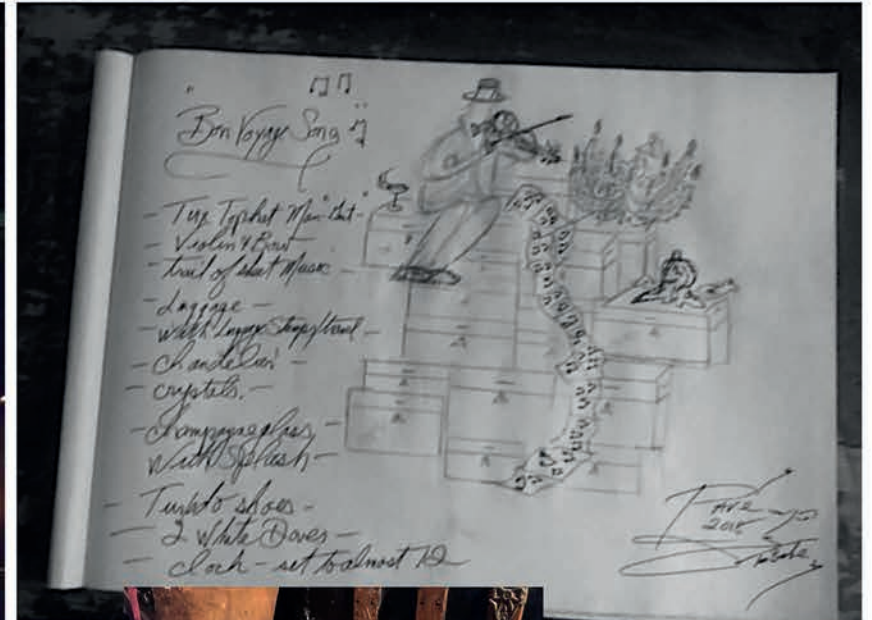 "Bon Voyage Song"
- Tux Tophat Man
- Violin & Bow -
- trail of sheet Music -
- Luggage -
- With
- Chandelier -
- crystals. -
- Champagne glass -
With Splash -
- Tuxedo shoes -
- 2 White Doves -
- clock - set to almost 12